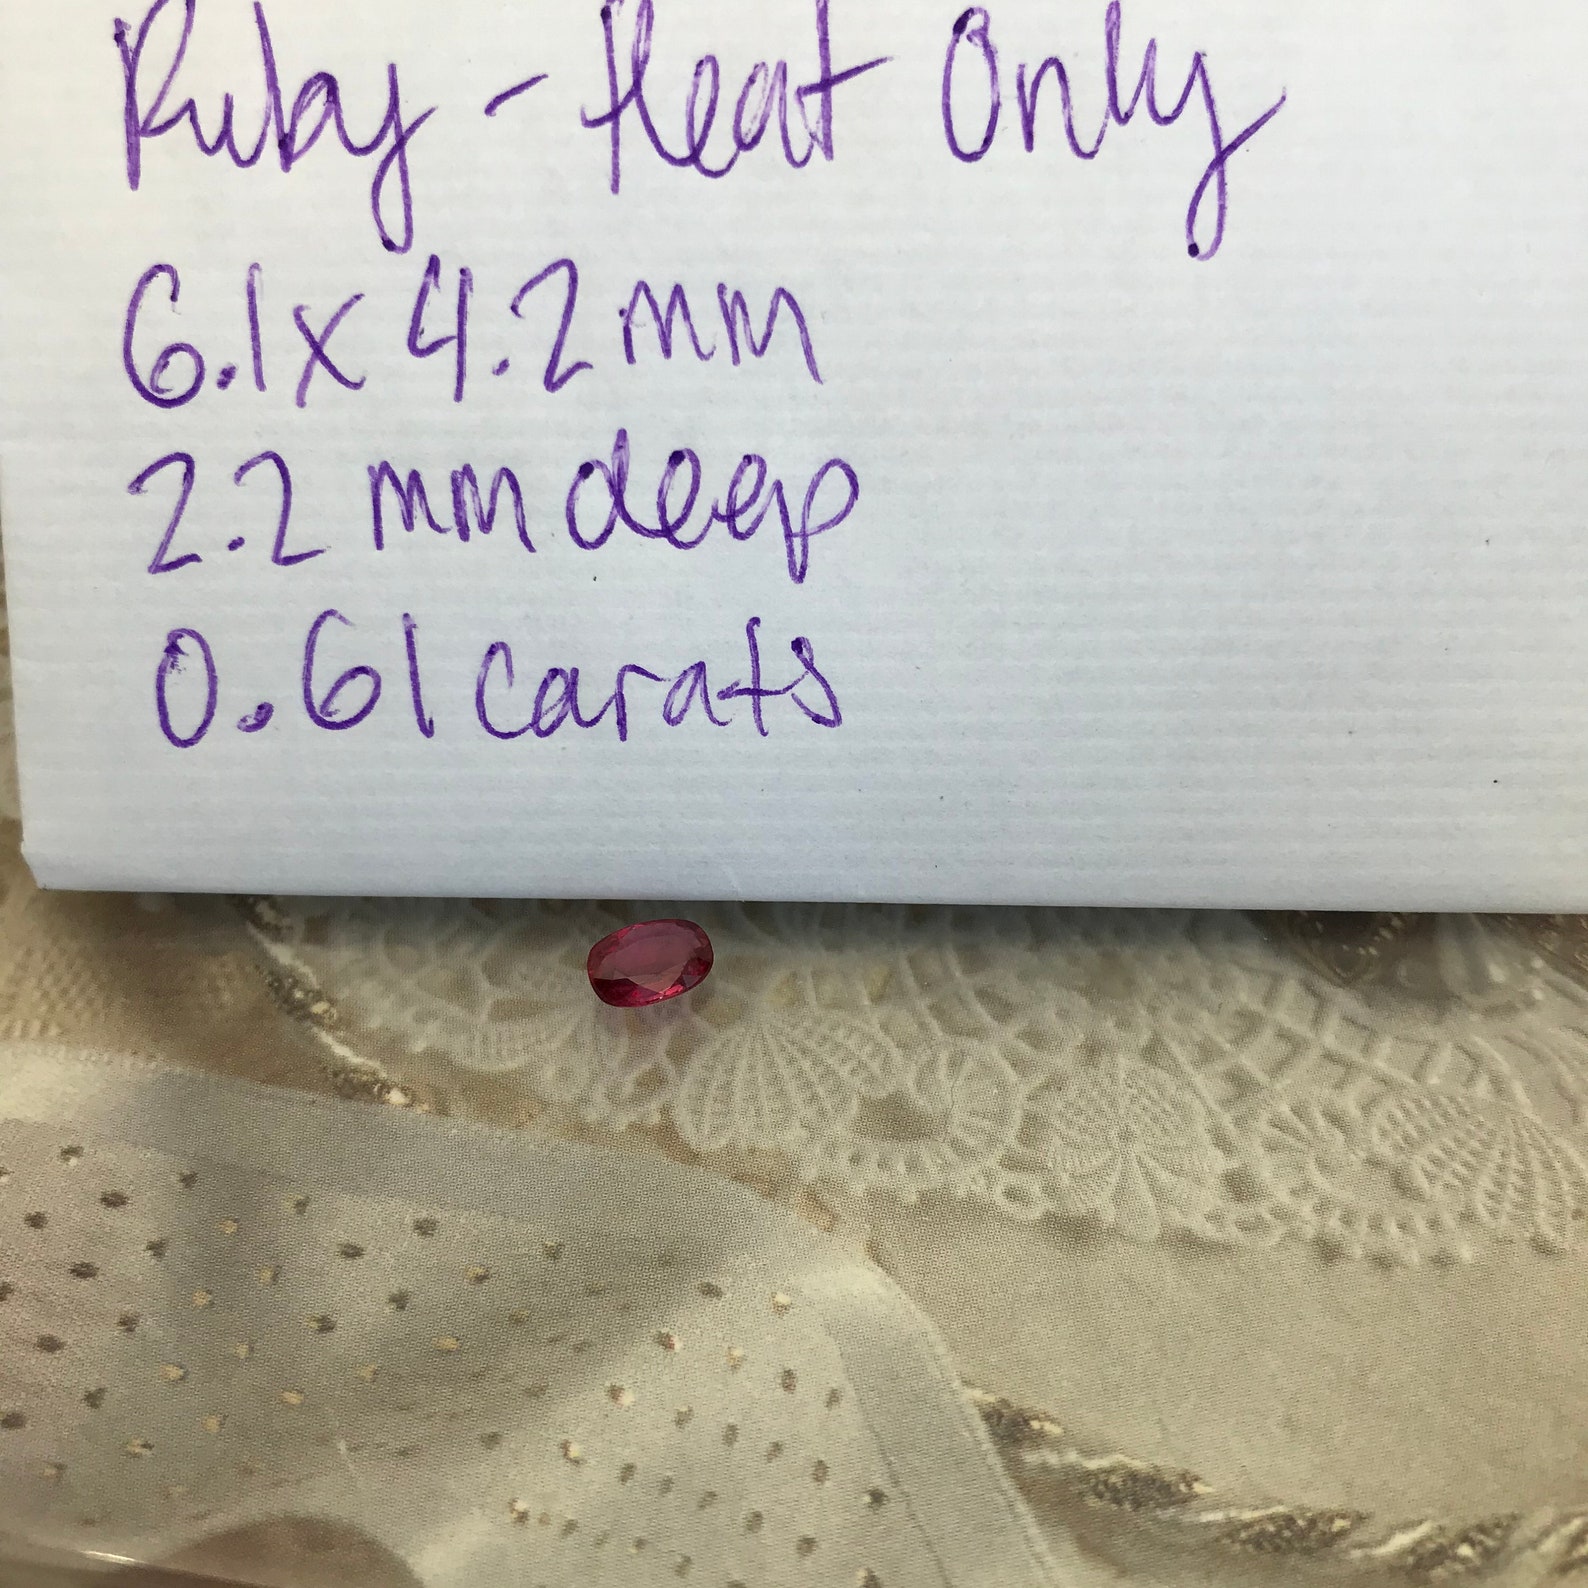 Ruby - Heat Only
6.1x4.2mm
2.2mm deep
0.61carats